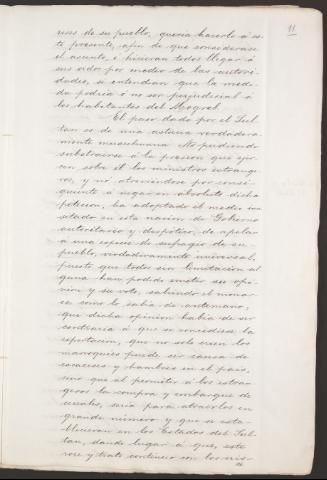 11
uses de su pueblo, queria hacerlo á es-
te presente, afin de que considerase
el asunto, é hicieran todos llegar á
sus oidos por medio de las autori-
dades, si entendian que la medi-
da podria ó no ser perjudicial á
los habitantes del Mogreb.
El paso dado por el Sul-
tan es de una astucia verdadera-
mente musulmana. No pudiendo
substraerse á la presion que ejer-
cen sobre él los ministros estrange-
ros, y no atreviendose por consi-
guiente á negar en absoluto dicha
peticion, ha adoptado el medio inu-
sitado en esta nacion de Gobierno
autoritario y despótico, de apelar
a una especie de sufragio de su
pueblo, verdaderamente universal,
puesto que todos sin limitacion al
guna han podido emitir su opi-
nion y su voto, sabiendo el monar-
ca como lo sabia de antemano,
que dicha opinion habia de ser
contraria á que se concediese la
esportacion, que no solo creen los
marroquies puede ser causa de
carestia y hambre en el pais,
sino que al permitir á los estran-
geros la compra y embarque de
cereales, seria para atraerlos en
grande número y que se esta-
blecieran en los Estados del Sul-
tan, dando lugar á que, este
roce y trato continuo con los mis-